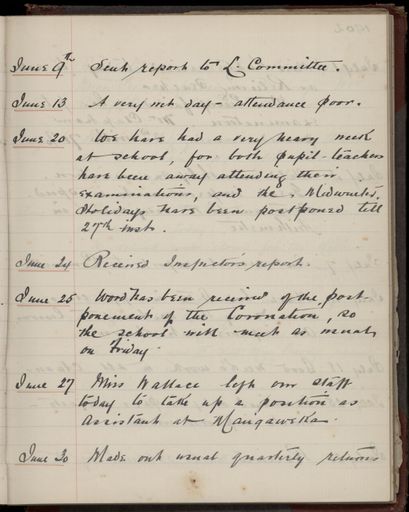 June 9th Sent report to L. Committee.
June 13 A very wet day - attendance poor.
June 20 We have had a very heavy week
at school, for both pupil-teachers
have been away attending their
examinations, and the Midwinter
Holidays have been postponed till
27th inst.
June 24 Received Inspectors report.
June 25 Word has been received of the post-
ponement of the Coronation, so
the school will meet as usual
on Friday.
June 27 Miss Wallace left our staff
today to take up a position as
Assistant at Mangaweka.
June 30 Made out usual quarterly returns